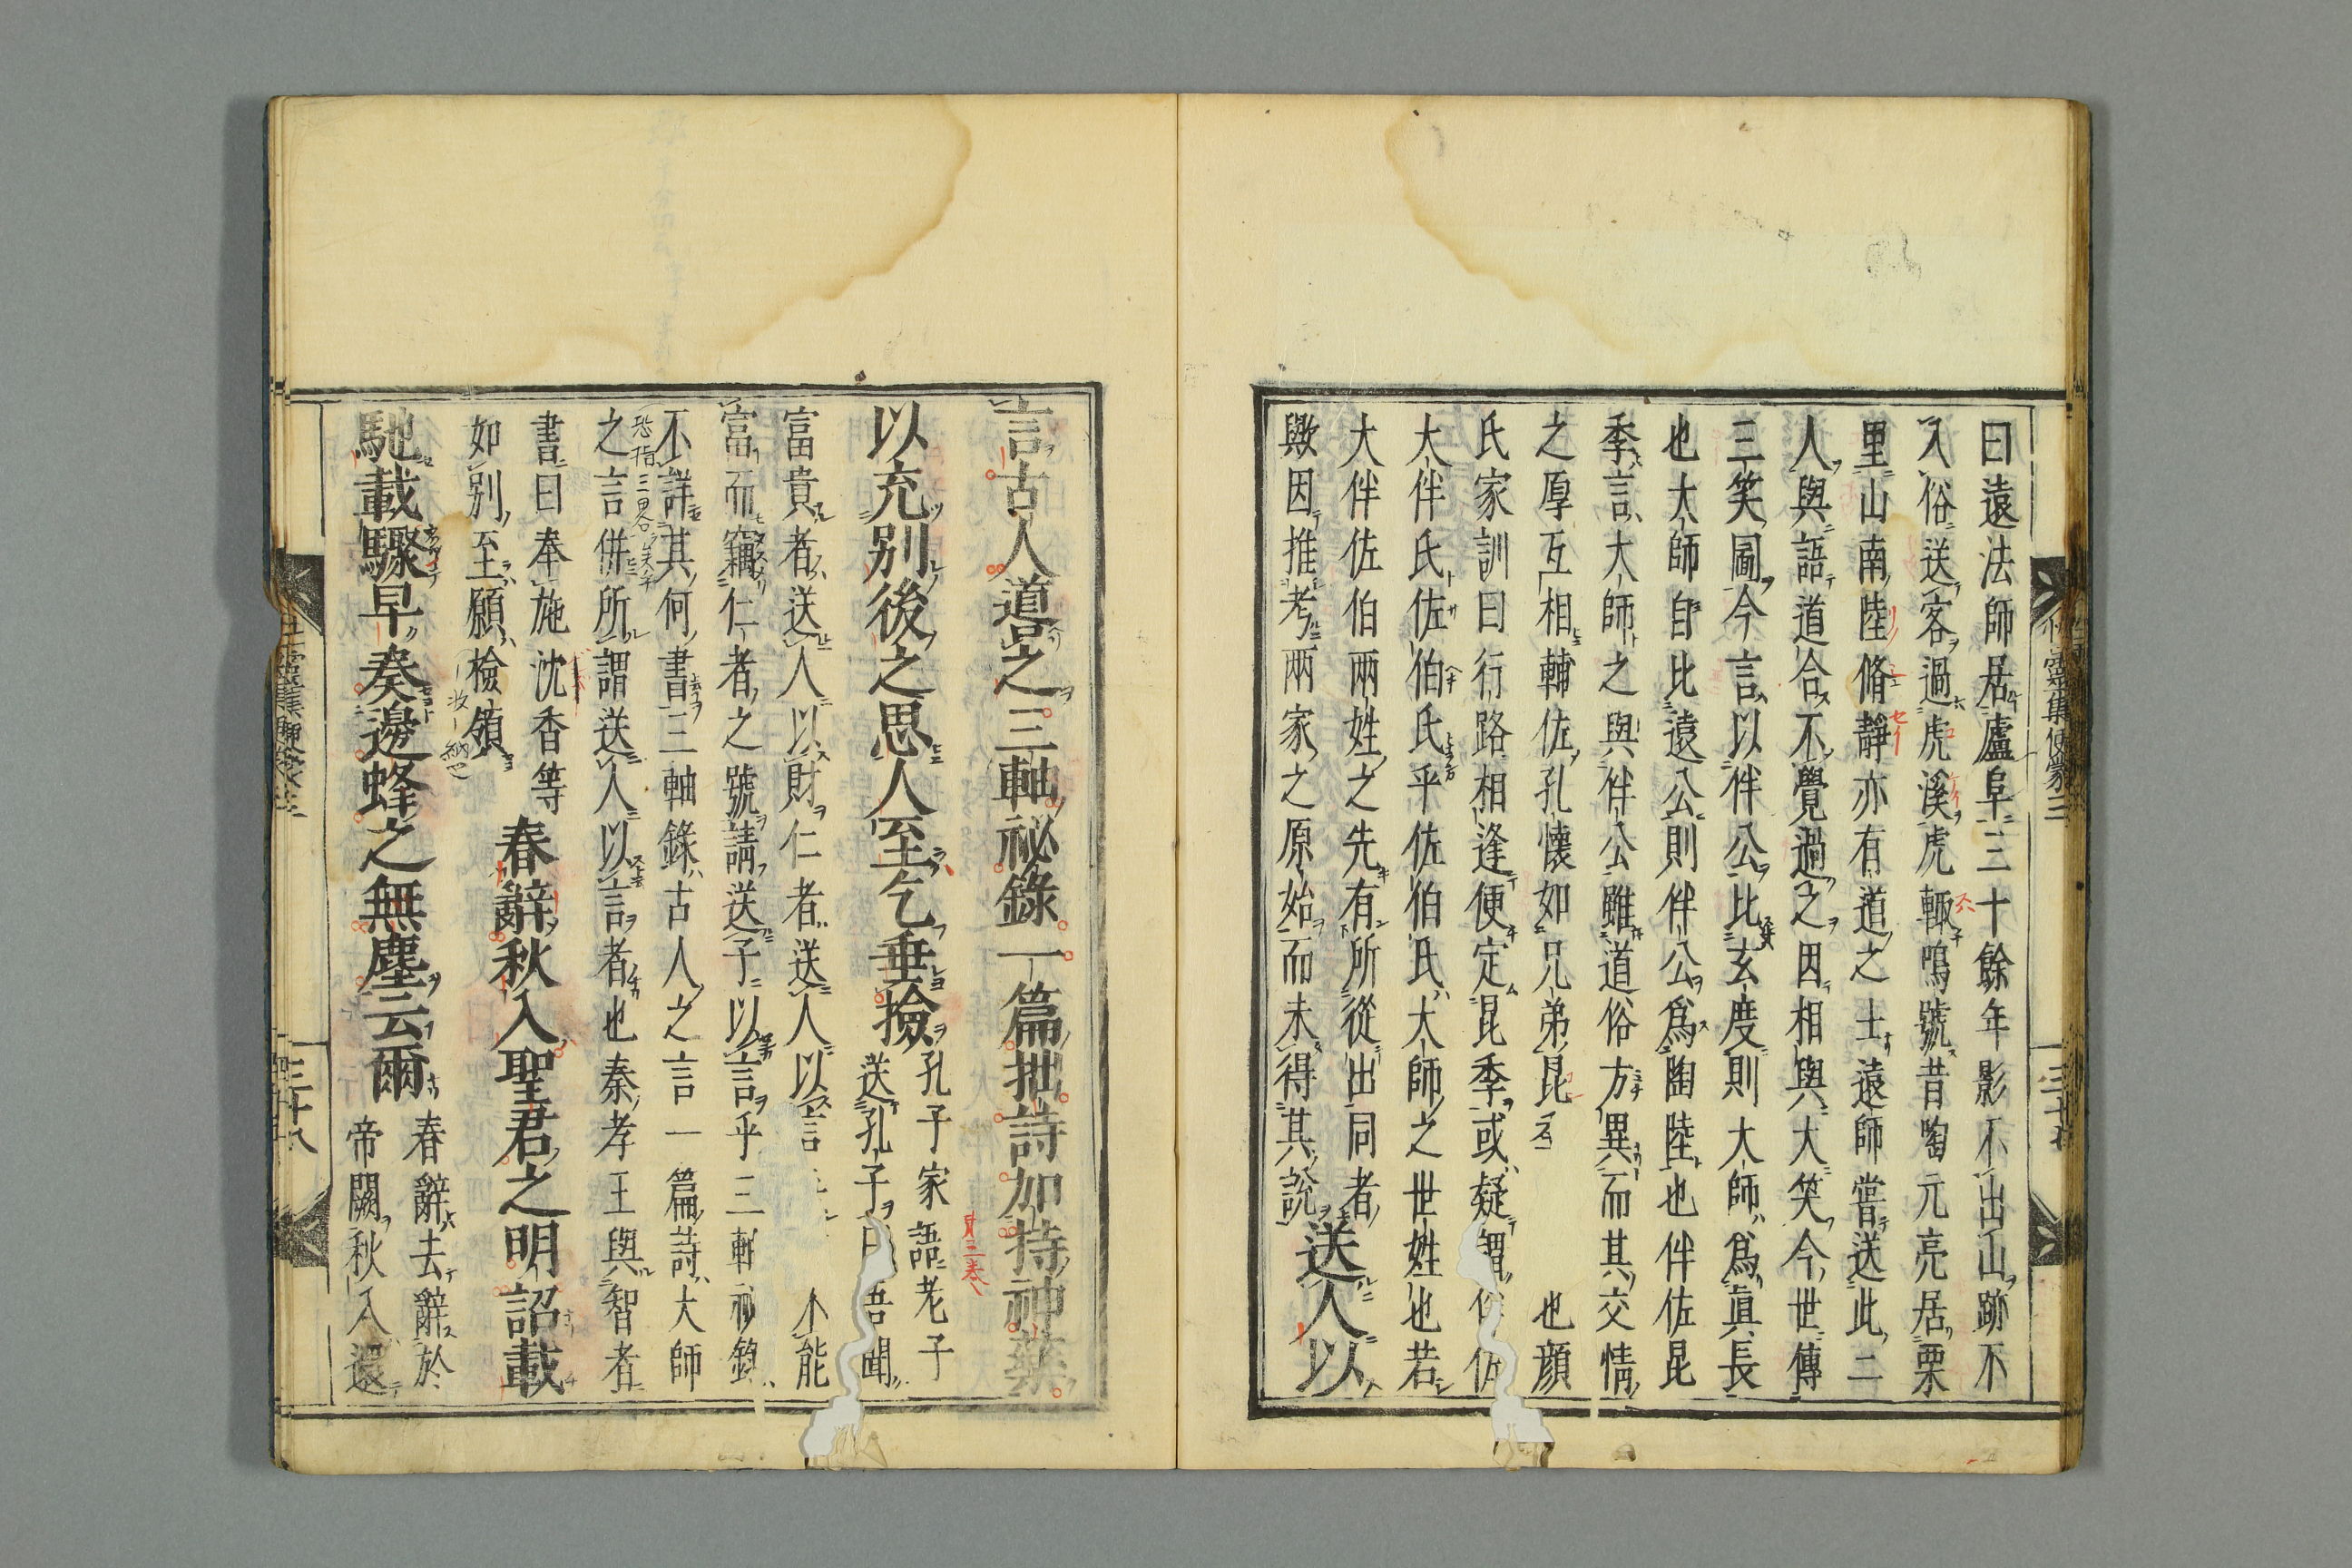 曰遠法師居廬阜三十餘年影不出山跡不
入俗送客過虎溪虎輙鳴號昔陶元亮居栗
里山南陸脩靜亦有道之士遠師嘗送此二
人與語道合不覺過之因相與大笑今世傳
三笑圖今言以伴公比玄度則大師爲眞長
也大師自比遠公則伴公爲陶陸也伴佐昆
季言大師之與伴公雖道俗方異而其交情
之厚互相輔佐孔懷如兄弟昆 也顔
氏家訓曰行路相逢便定昆季或疑謂
大伴氏佐伯氏乎佐伯氏大師之世姓也若
大伴佐伯兩姓之先有所從出同者
歟因推考兩家之原始而未得其說送人以
言古人道之三軸祕錄一篇拙詩加持神藥
以充別後之思人至乞垂撿孔子家語老子
送孔子曰吾聞
富貴者送人以財仁者送人以言 不能
富而竊仁者之號請送子以言乎三軸祕錄
不詳其何書三軸錄古人之言一篇詩大師
恐指三畧
之言併所謂送人以言者也秦孝王與智者
書曰奉施沈香等
如別至願檢領
春辭秋入聖君之明詔載
馳載驟早奏邊蜂之無塵云爾春辭去辭於
帝闕秋入還
三十八